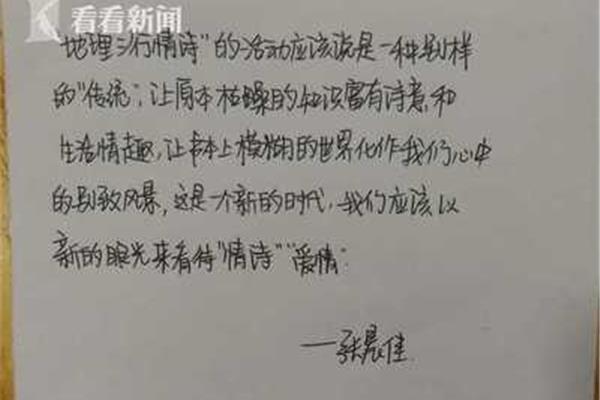 看看新闻
"地理三行情诗"的活动应该说是一种别样
的"传统",让原本枯燥的知识富有诗意和
生活情趣,让书本上模糊的世界化作我们心中
的别致风暴,这是一个新的时代,我们应该以
新的眼光来看待"情诗""爱情"。
——张晨佳